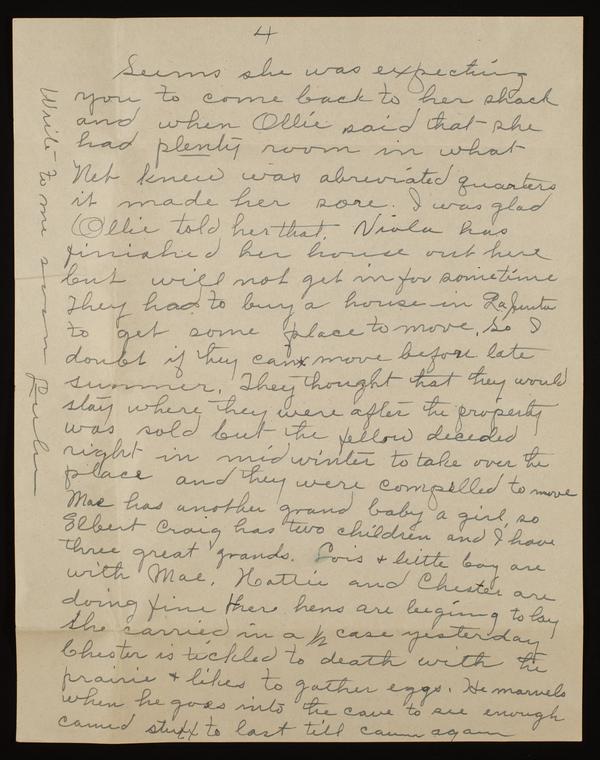 4
Seems she was expecting
you to come back to her shack
and when Ollie said that she
had plenty room in what
Net knew was abreviated quarters
it made her sore. I was glad
Ollie told her that. Viola has
finished her house out here
but will not get in for sometime
They had to buy a house in LaJunta
to get some place to move, so I
doubt if they can move before late
summer. They thought that they would
stay where they were after the property
was sold but the fellow decided
right in midwinter to take over the
place and they were compelled to move
Mae has another grand baby a girl, so
Elbert Craig has two children and I have
three great grands. Lois & little boy are
with Mae. Hattie and Chester are
doing fine there hens are begining to lay
She carried in a ½ case yesterday
Chester is tickled to death with the
prairie & likes to gather eggs. He marvels
when he goes into the cave to see enough
canned stuff to last till again
Write to me soon